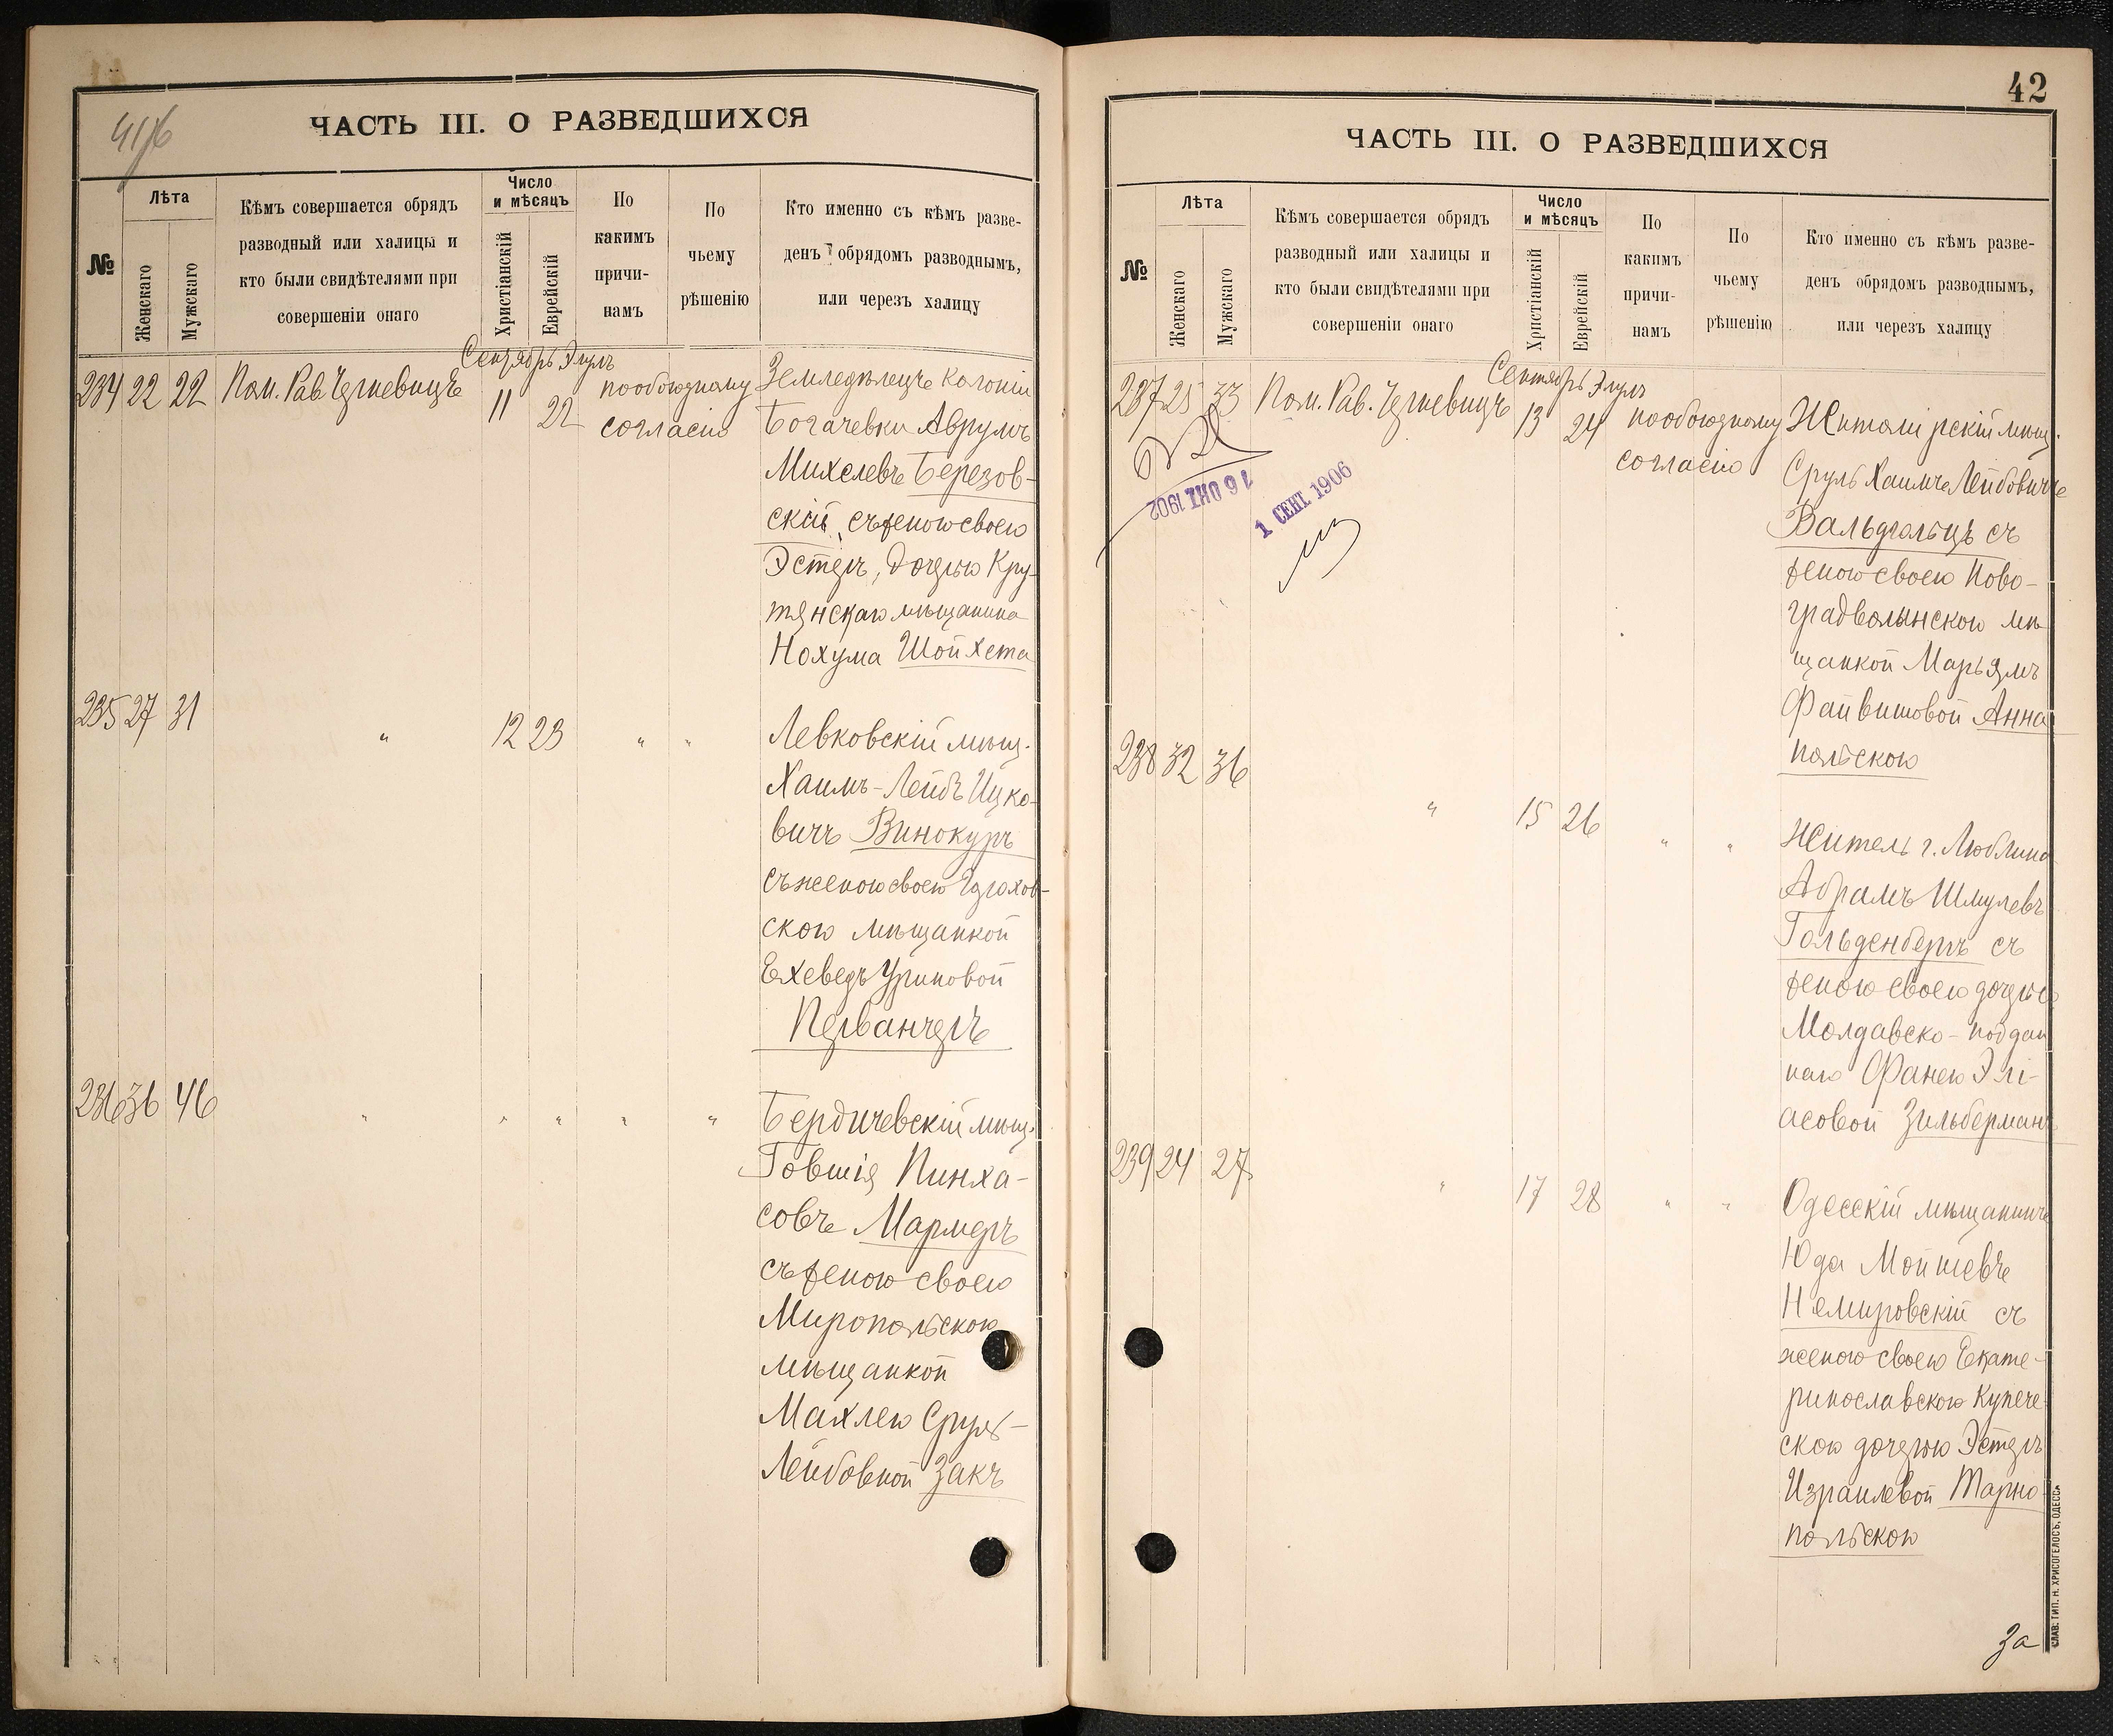 41/б
ЧАСТЬ III. О РАЗВЕДШИХСЯ
№
Лѣта
Женскаго
Мужскаго
Кѣмъ совершается обрядъ
разводный или халицы и
кто были свидѣтелями при
совершеніи онаго
Число
и мѣсяцъ
Христіанскій
Еврейскій
По
какимъ
причи-
намъ
По
чьему
рѣшенію
Кто именно съ кѣмъ разве-
денъ обрядомъ разводнымъ,
или черезъ халицу
Сентябрь Элулъ
234 22 22 Пом. Рав. 11 22 по обоюдному
согласію
Земледѣлецъ колоніи
Богачевки Аврумъ
Михелевъ Березов-
скій, съ женою своею
Эстеръ, дочерью Кру-
тянскаго мѣщанина
Нохума Шойхета
235 27 31 " 12 23 " "
Левковскій мѣщ.
Хаимъ-Лейбъ Ицко-
вичъ Винокуръ
съ женою своею
скою мѣщанкой
Ехеведъ Уриновой
Перванчеръ
236 36 46 " " " " "
Бердичевскій мѣщ.
Говшія Пинха-
совъ Мармеръ
съ женою своею
Миропольскою
мѣщанкой
Махлею Сруль-
Лейбовной Закъ
42
ЧАСТЬ III. О РАЗВЕДШИХСЯ
№
Лѣта
Женскаго
Мужскаго
Кѣмъ совершается обрядъ
разводный или халицы и
кто были свидѣтелями при
совершеніи онаго
Число
и мѣсяцъ
Христіанскій
Еврейскій
По
какимъ
причи-
намъ
По
чьему
рѣшенію
Кто именно съ кѣмъ разве-
денъ обрядомъ разводнымъ,
или черезъ халицу
Сентябрь Элулъ
237 25 33 Пом. Рав. 13 24 по обоюдному
согласію
16 ОКТ 1902
1 СЕНТ 1906
Житомірскій мѣщ.
Сруль Хаимъ Лейбовичъ
Вальдгольцъ съ
женою своею Ново-
градволынскою мѣ-
щанкой Марьямъ
Файвишовой Анна
польскою
238 32 36 " 15 26 " "
Житель г. Люблина
Абрамъ Шмулевъ
Гольденбергъ съ
женою своею дочерью
Молдавско-поддан
наго Фанею Элі-
асовой Зильберманъ
239 24 27 " 17 28 " "
Одесскій мѣщанинъ
Юда Мошкевъ
Немировскій съ
женою своею Екате-
ринославскою купече
скою дочерью Эстеръ
Израилевой Тарно
польскою
За
СЛАВ. ТИП. Н. ХРИСОГЕЛОСЪ, ОДЕССА